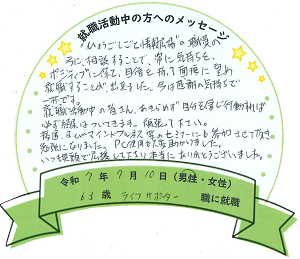 就職活動中の方へのメッセージ
"ひょうごしごと情報広場"の職員の
方に、相談することで、常に気持ちを、
ポジティブに保て、自信を持って面接に望め
就職することが、出来ました。今は感謝の気持ちで
一杯です。
就職活動中の皆さん、あきらめず自分を信じ行動すれば
必ず結果はついてきます。頑張って下さい。
マインドフルネス 等のセミナーにも参加させて頂き
勉強になりました。PC使用も大変助かりました。
いつも笑顔で応援して下さり本当にありがとうございました。
令和 7 年 7 月 10 日(男性・女性)
63 歳 ライフサポーター 職に就職